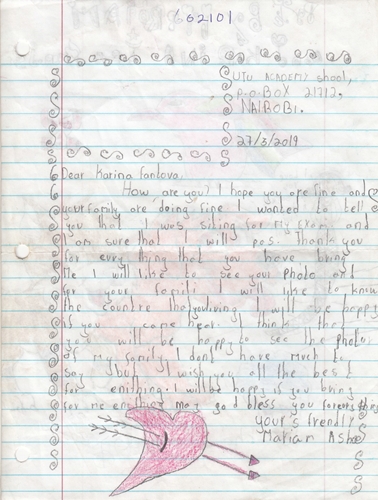 662101
UTU ACADEMY shool,
P.O.BOX 21712,
NAIBOBI.
27/3/2019
Dear Karina Fontova
How are you? I hope you are fine and
your family are doing fine I wanted to tell
you that I was siting for my exam and
I am sure that I will pas. thank you
for every thing that you have bring
Me I will like to see your photo and
for your famili I will like to know
the countre that you living I will be happy
if you come hear. I think the
you will be happy to see the photos
of my family I dont have much to
say but I wish you all the best
for enithing. I will be happy if you bring
for me enithing may god bless you
your's frendly
Marian